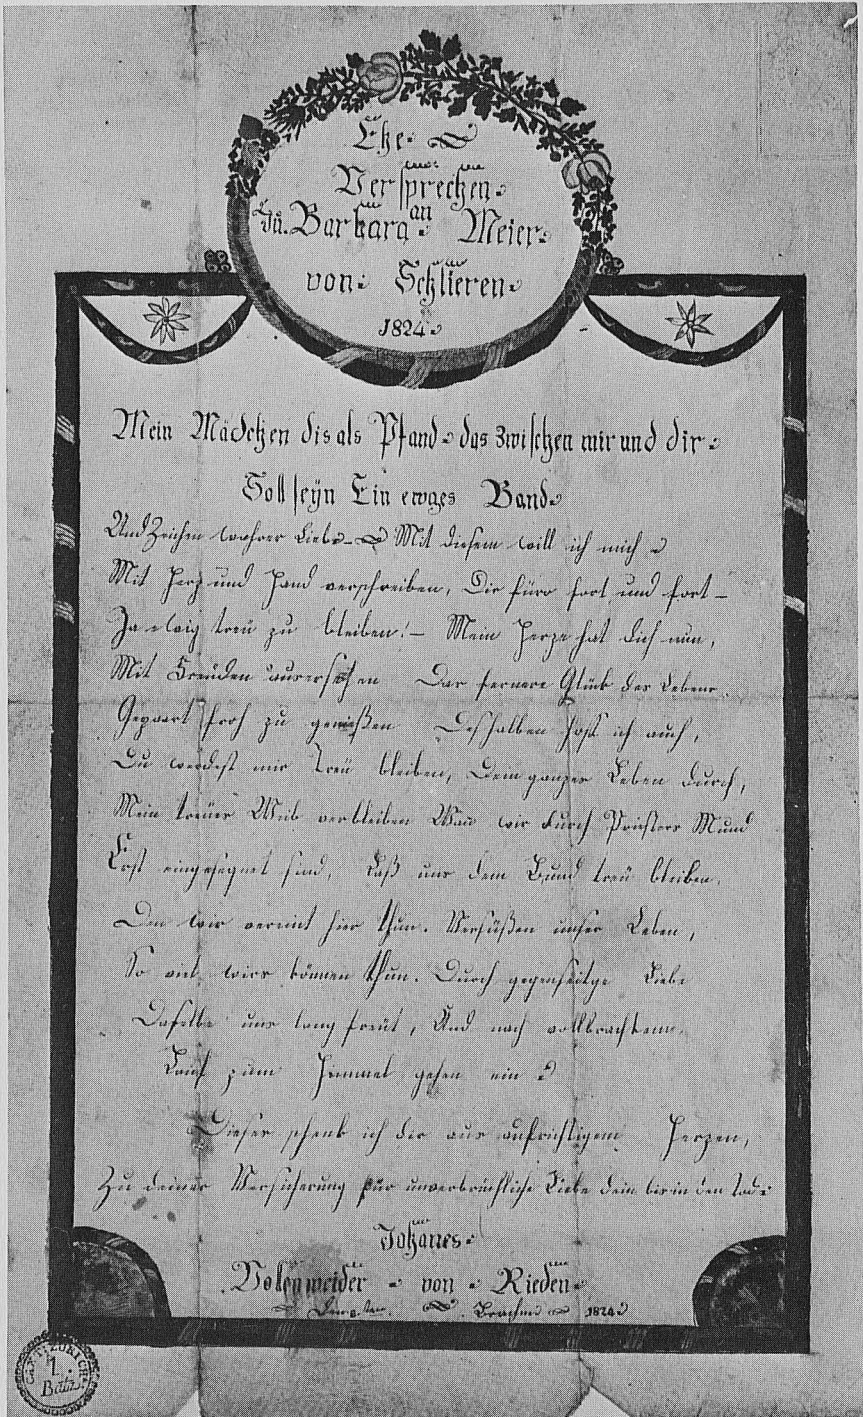 Ehe
Versprechen
an
Ju. Barbara Meier
von Schlieren
1824
Mein Mädchen dis als Pfand das zwischen mir und dir
Soll seÿn Ein ewges Band
Und Zeichen wahrer Liebe Mit diesem will ich mich
Mit Herz und Hand verschreiben, Dir füro fort und fort
Ja ewig treü zu bleiben! Mein Herze hat dich nun,
Mit Freuden ausersehen Das fernere Glük des Lebens
Gepaart froh zu genießen Deshalben hoff ich auch,
Du werdest mir Treü bleiben, Dein ganzes Leben durch,
Mein treües Weib verbleiben Wan wir durch Priesters Mund
Erst eingesegnet sind, Laß uns dem Bund treü bleiben,
Den wir vereint hier thun. Versüßen unser Leben,
So viel wirs können thun. Durch gegenseitge Liebe
Daselbe uns lang freüt, Und nach vollbrachtem
Lauf zum Himmel gehen ein
Dieses schenk ich dir aus aufrichtigem Herzen,
Zu deiner Versicherung für unverbrüchliche Liebe dein bis in den Tod
Johanes
Volenweider von Rieden
Den Brachm 1824
CANT. ZÜRICH
1.
Batz.